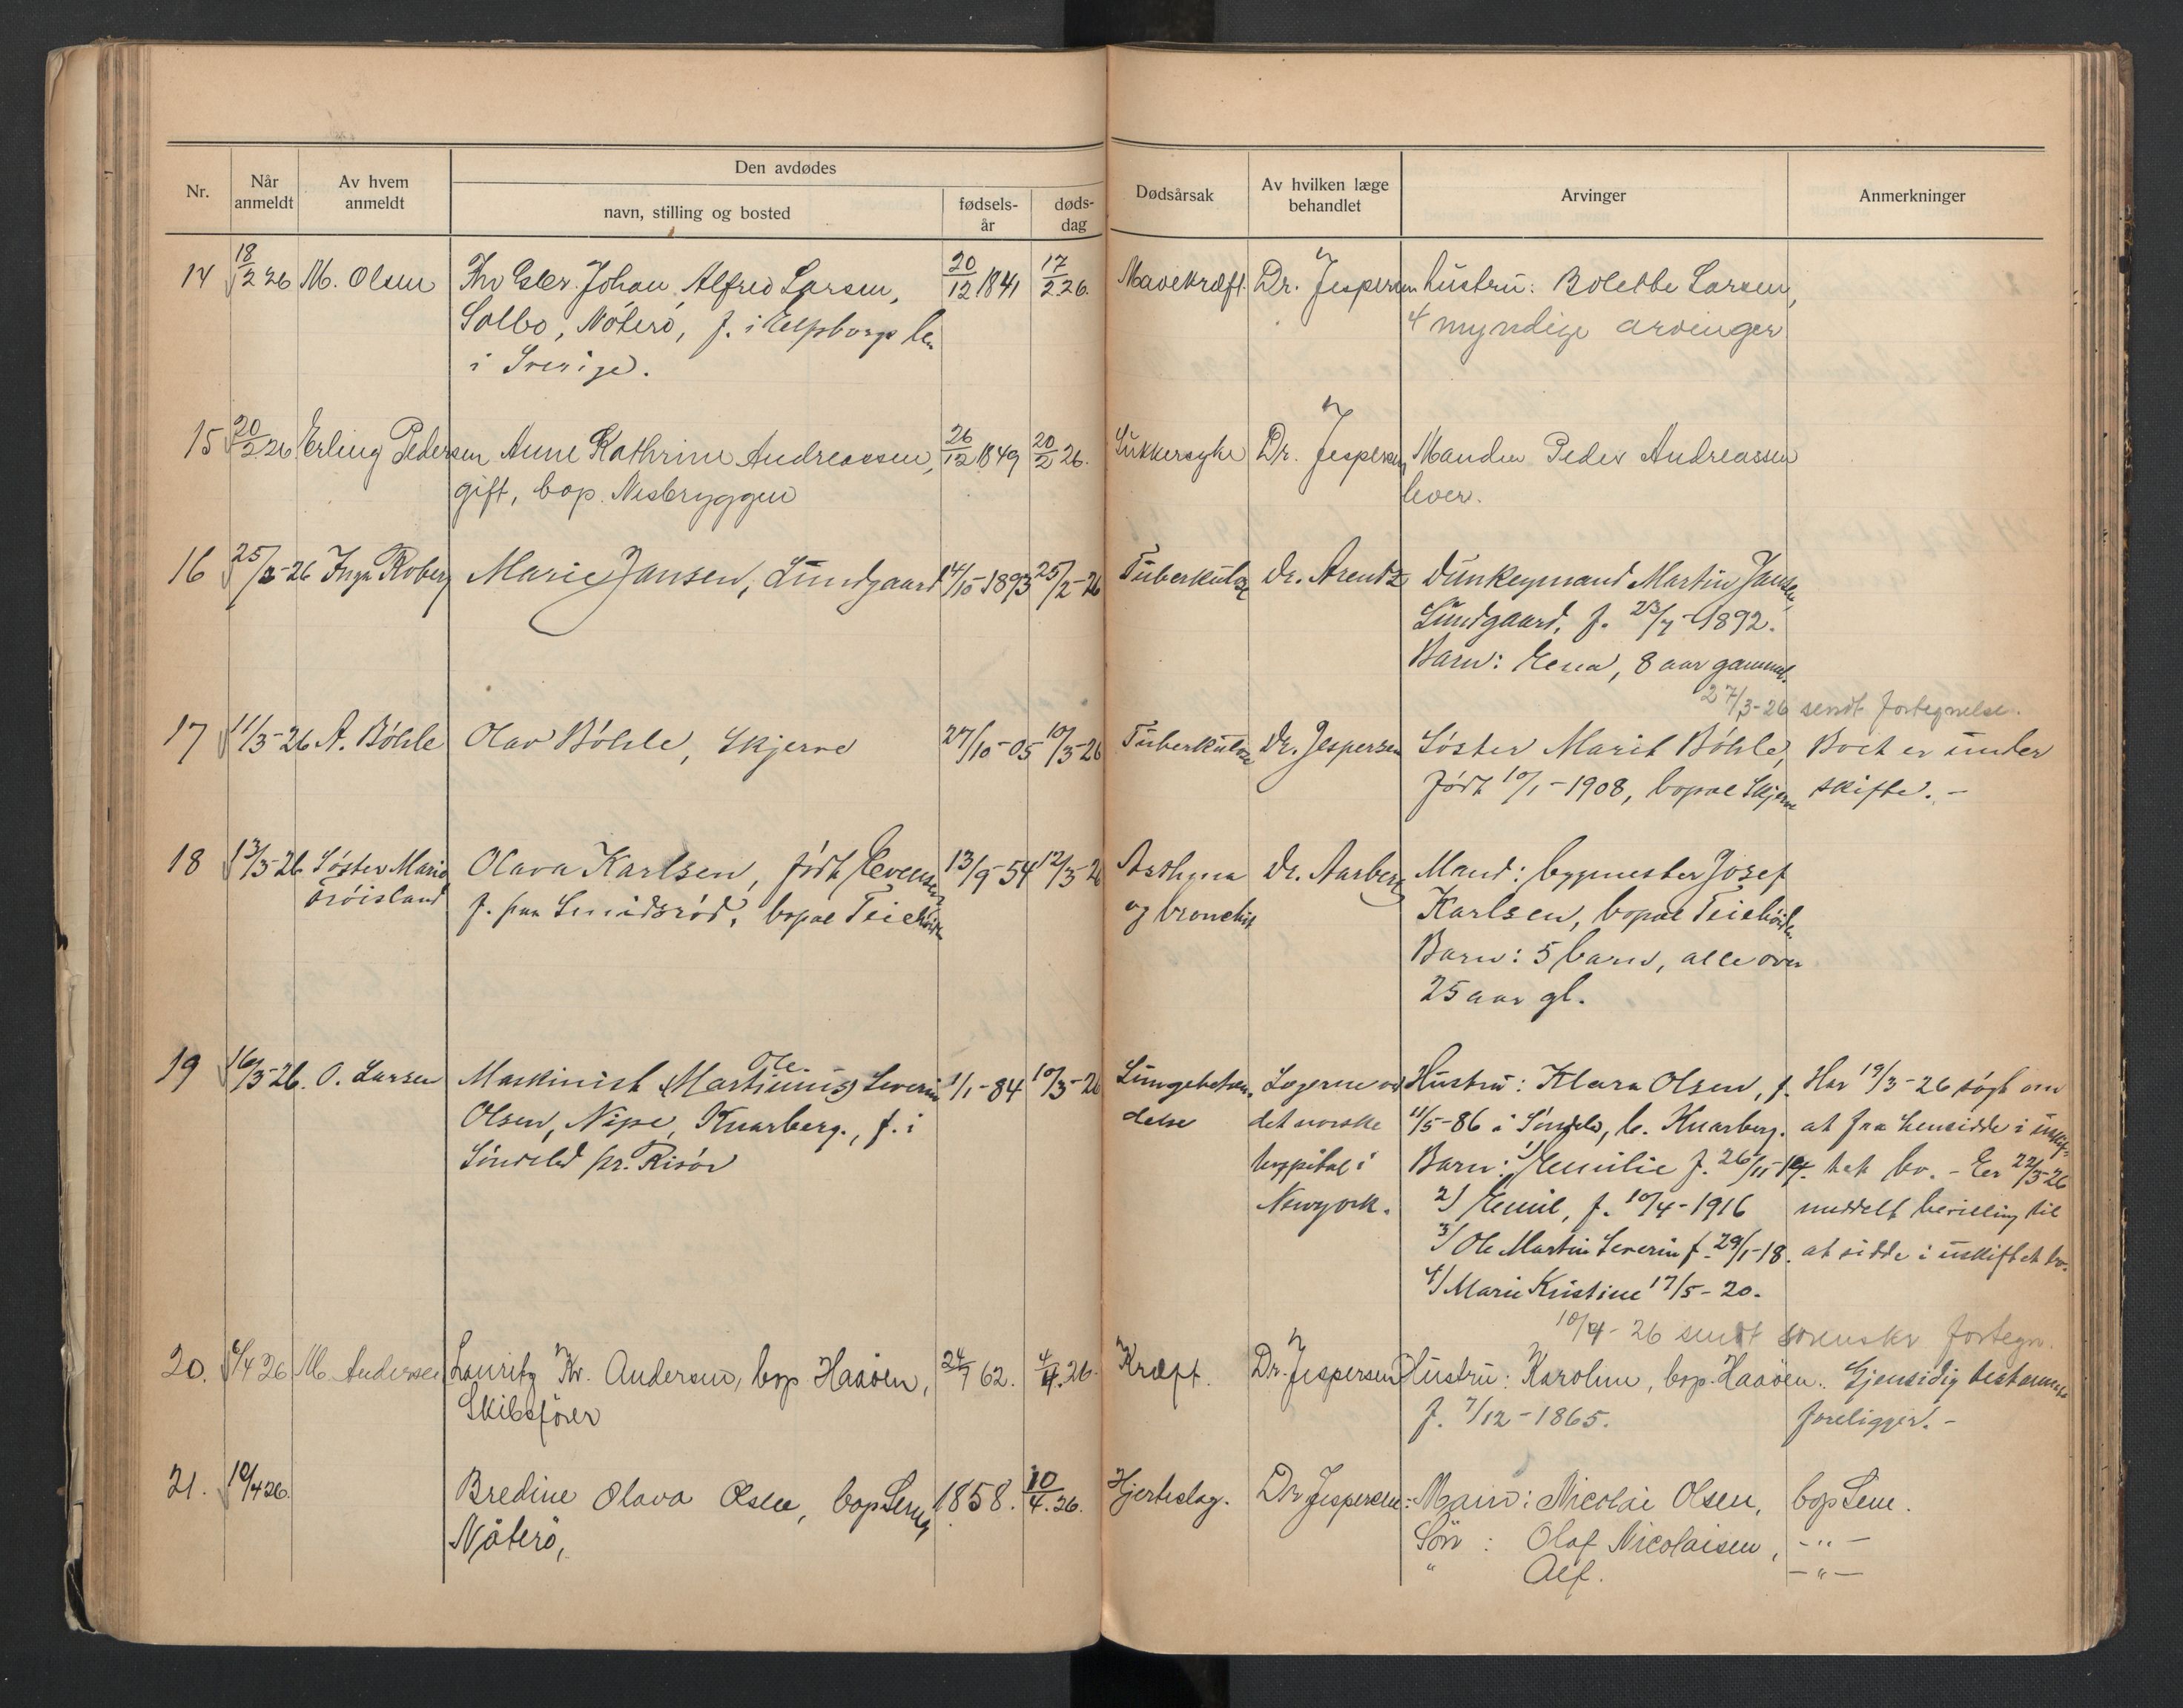 Den avdødes
Nr. Når anmeldt Av hvem anmeldt navn, stilling og bosted fødsels-år døds-dag Dødsårsak Av hvilken læge behandlet Arvinger Anmerkninger
14 18/2 26 M. Olsen Johan Alfred Larsen, 20/12 1841 17/2 26. Mavekræft. Dr. Jespersen Hustru: Bolette Larsen,
Solbo, Nøterø, f. i Elfsborgs len 4 myndige arvinger
i Sverige.
15 20/2 26 Erling Pedersen Anne Kathrine Andreassen, 26/12 1849 20/2 26. Sukkersyke Dr. Jespersen Manden Peder Andreassen
gift, bop. Nesbryggen lever.
16 25/2-26 Inga Roberg Marie Jansen, Lundgaard 14/10-1893 25/2-26 Tuberkulose Dr. Arentz Dunkeymand Martin Jansen,
Lundgaard, f. 23/7-1892.
Barn: Erna, 8 aar gammel.
27/3-26 sendt fortegnelse.
17 11/3-26 A. Bøhle Olav Bøhle, Skjerve 27/10-05 10/3-26 Tuberkulose Dr. Jespersen Søster Marit Bøhle, Boet er under
født 10/1-1908, bopæl Skjerve skifte.-
18 13/3-26 Søster Marie Olava Karlsen, født Evensen 13/9-54 12/3-26 Asthma Dr. Aarberg Mand: bygmester Josef
Frøisland f. paa Smidsrød, bopæl Teiehøiden og bronchit Karlsen, bopæl Teiehøiden
Barn: 5 barn, alle over
25 aar gl.
Ole
19 16/3-26. O. Larsen Maskinist (Martinius) Severin 1/1-84 10/3-26 Lungebetæn- Lægerne ved Hustru: Klara Olsen, f. Har 19/3-26 søgt om
Olsen, Nipe, Knarberg., f. i delse det norske 11/5-86 i Søndeled, b. Knarberg. at faa hensidde i uskif-
Søndeled pr. Risør hospital i Barn: 1) Emilie f. 26/11-14. tet bo. - Er 22/3-26
Newyork. 2) Emil, f. 10/4-1916 meddelt bevilling til
3) Ole Martin Severin f. 29/1-18. at sidde i uskiftet bo.
4) Marie Kristine 17/5-20.
10/4-26 sendt sorenskr fortegn.
20. 6/4 26 M. Andersen Lauritz Kr. Andersen, bop Haaøen, 24/7 62. 4/4.26. Kræft. Dr. Jespersen Hustru: Karoline, bop. Haaøen. Gjensidig testamente
Skibsfører f. 7/12-1865. foreligger.-
21. 10/4 26. Bredine Olava Olsen, bop 1858. 10/4.26. Hjerteslag. Dr Jespersen: Mand: Nicolai Olsen, bop
Nøterø, Søn: Olaf Nicolaisen, -"-
" Alf. -"-